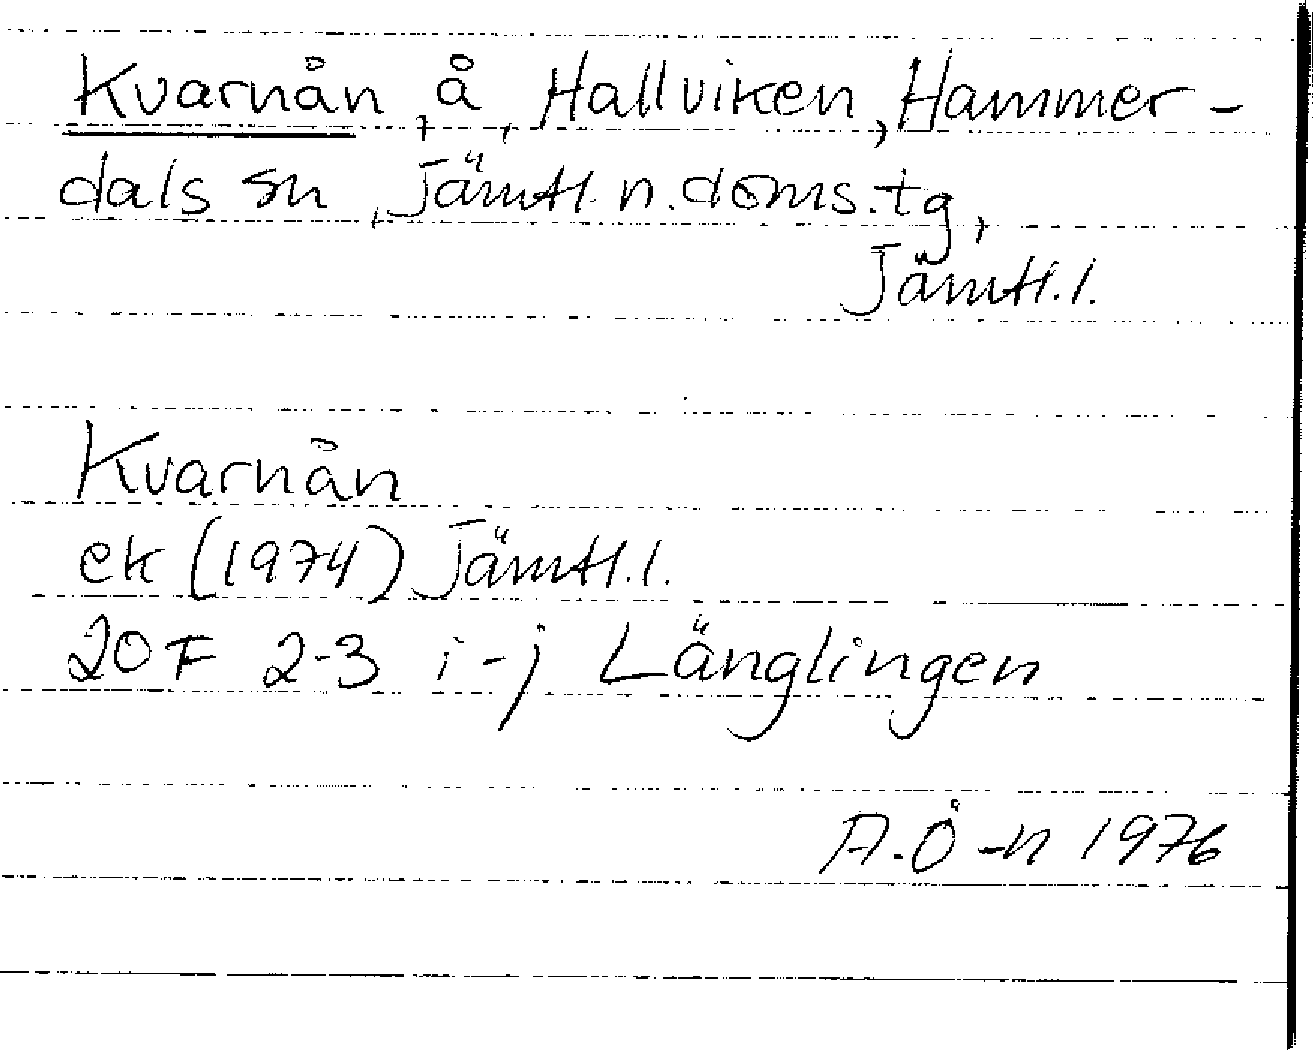 Kvarnån, å, Hallviken, Hammer-
dals sn, Jämtl. n. doms. tg,
Jämtl. l.
Kvarnån
ek (1974) Jämtl. l.
20F 2-3 i-j Länglingen
A. Ö-n 1976